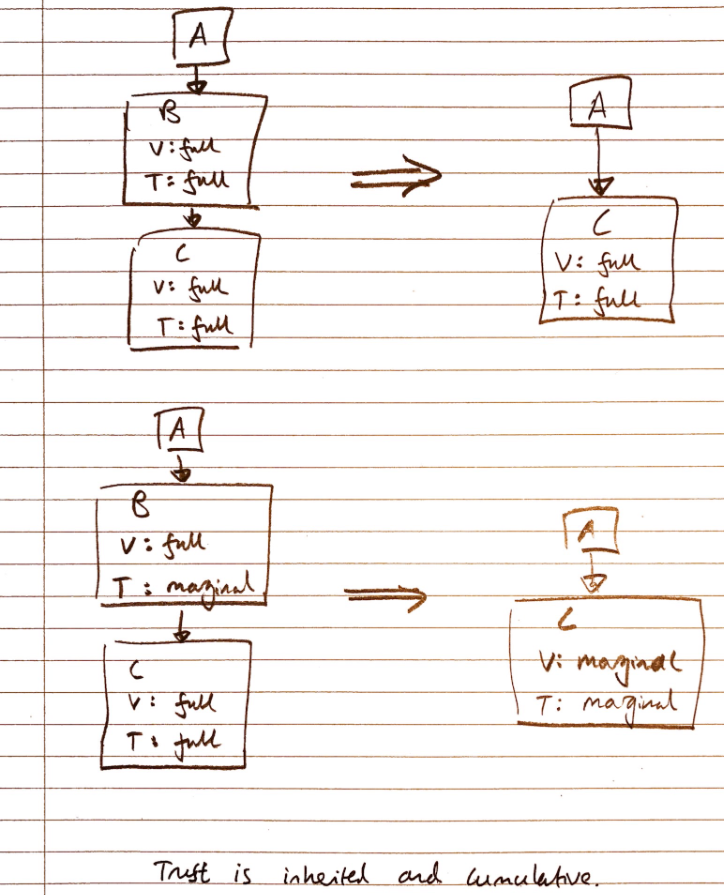 A
B
V: full
T: full
C
V: full
T: full
A
C
V: full
T: full
A
B
V: full
T: marginal
C
V: full
T: full
A
C
V: marginal
T: marginal
Trust is inherited and cumulative.